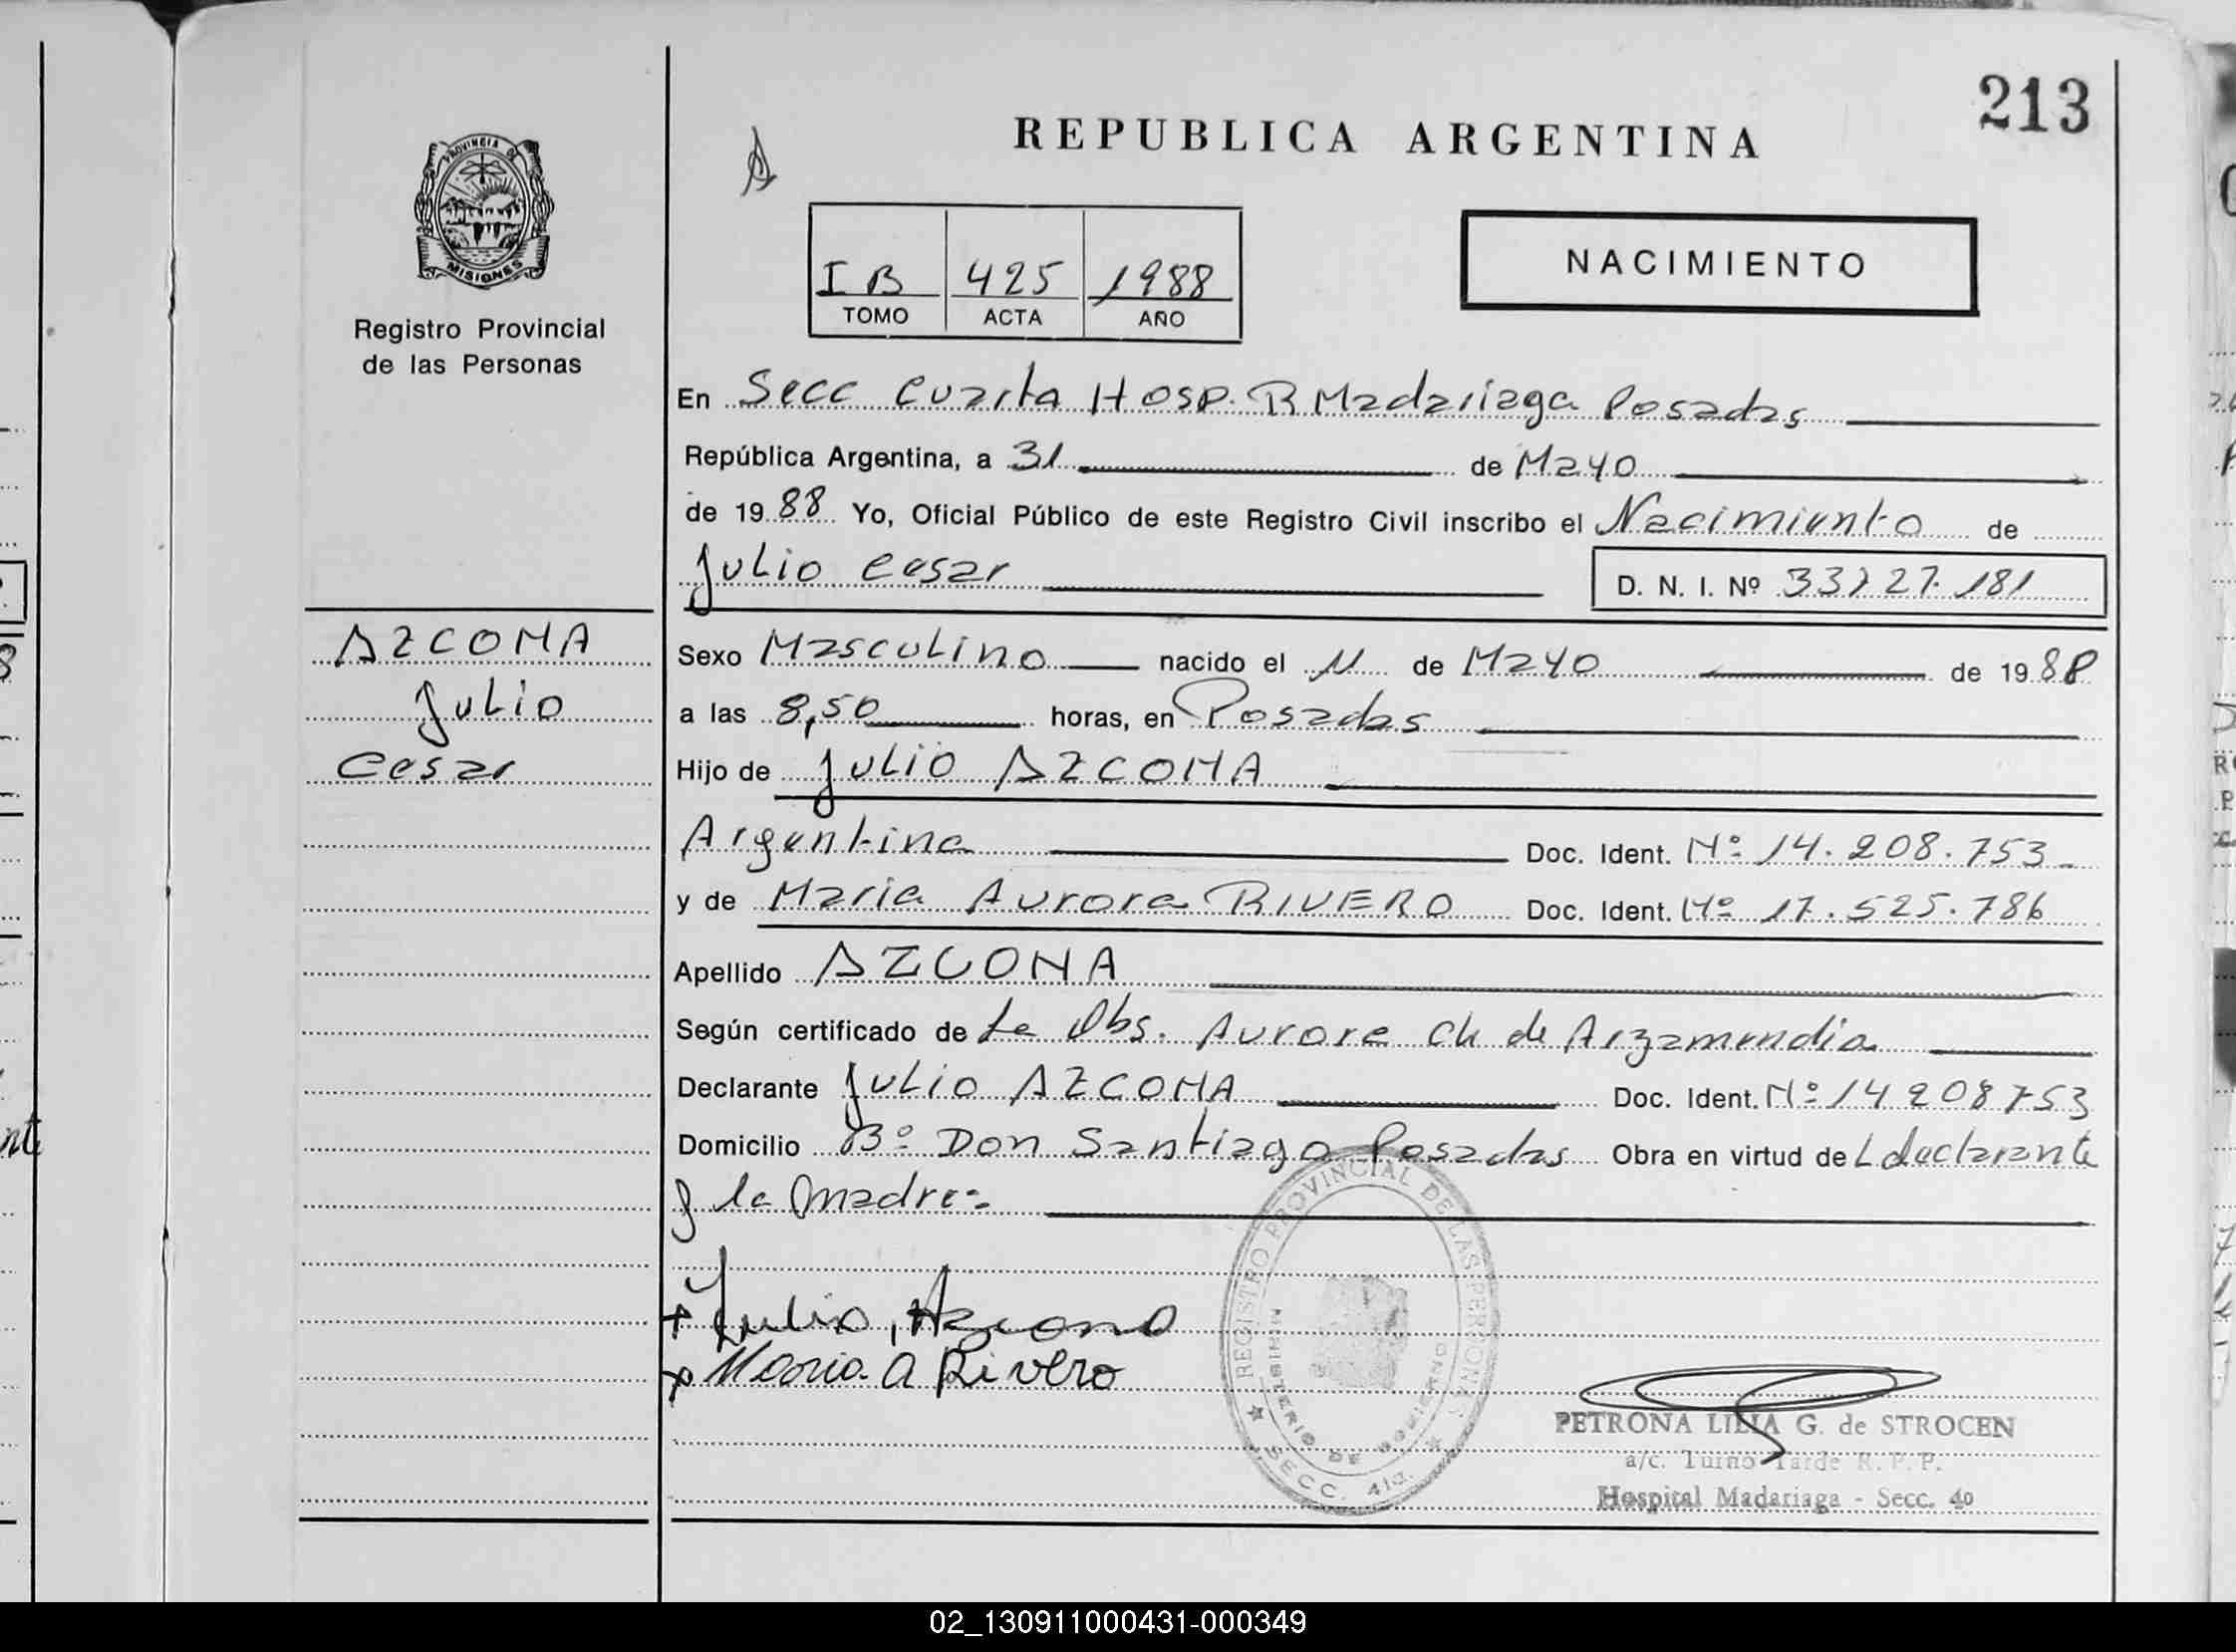 213
REPUBLICA ARGENTINA
PROVINCIA DE
MISIONES
Registro Provincial
de las Personas
NACIMIENTO
I B 425 1988
TOMO ACTA AÑO
En Secc Cuarta Hosp. R Madariaga Posadas
República Argentina, a 31 de Mayo
de 1988 Yo, Oficial Público de este Registro Civil inscribo el Nacimiento de
Julio Cesar
D. N. I. Nº 33727.181
AZCONA
Julio
Cesar
Sexo Masculino nacido el 11 de Mayo de 1988
a las 8,50 horas, en Posadas
Hijo de Julio AZCONA
Argentina Doc. Ident. Nº 14.208.753
y de Maria Aurora RIVERO Doc. Ident. Nº 17.525.786
Apellido AZCONA
Según certificado de La Obs. Aurora Ch de Arzamendia
Declarante Julio AZCONA Doc. Ident. Nº 14208753
Domicilio Bº Don Santiago Posadas Obra en virtud de L declarante
y la Madre=
Julio, Azcona
Maria A Rivero
REGISTRO PROVINCIAL DE LAS PERSONAS
MINISTERIO DE GOBIERNO
SECC. 4ta.
PETRONA LILIA G. de STROCEN
a/c. Turno Tarde R. P. P.
Hospital Madariaga - Secc. 4º
02_130911000431-000349